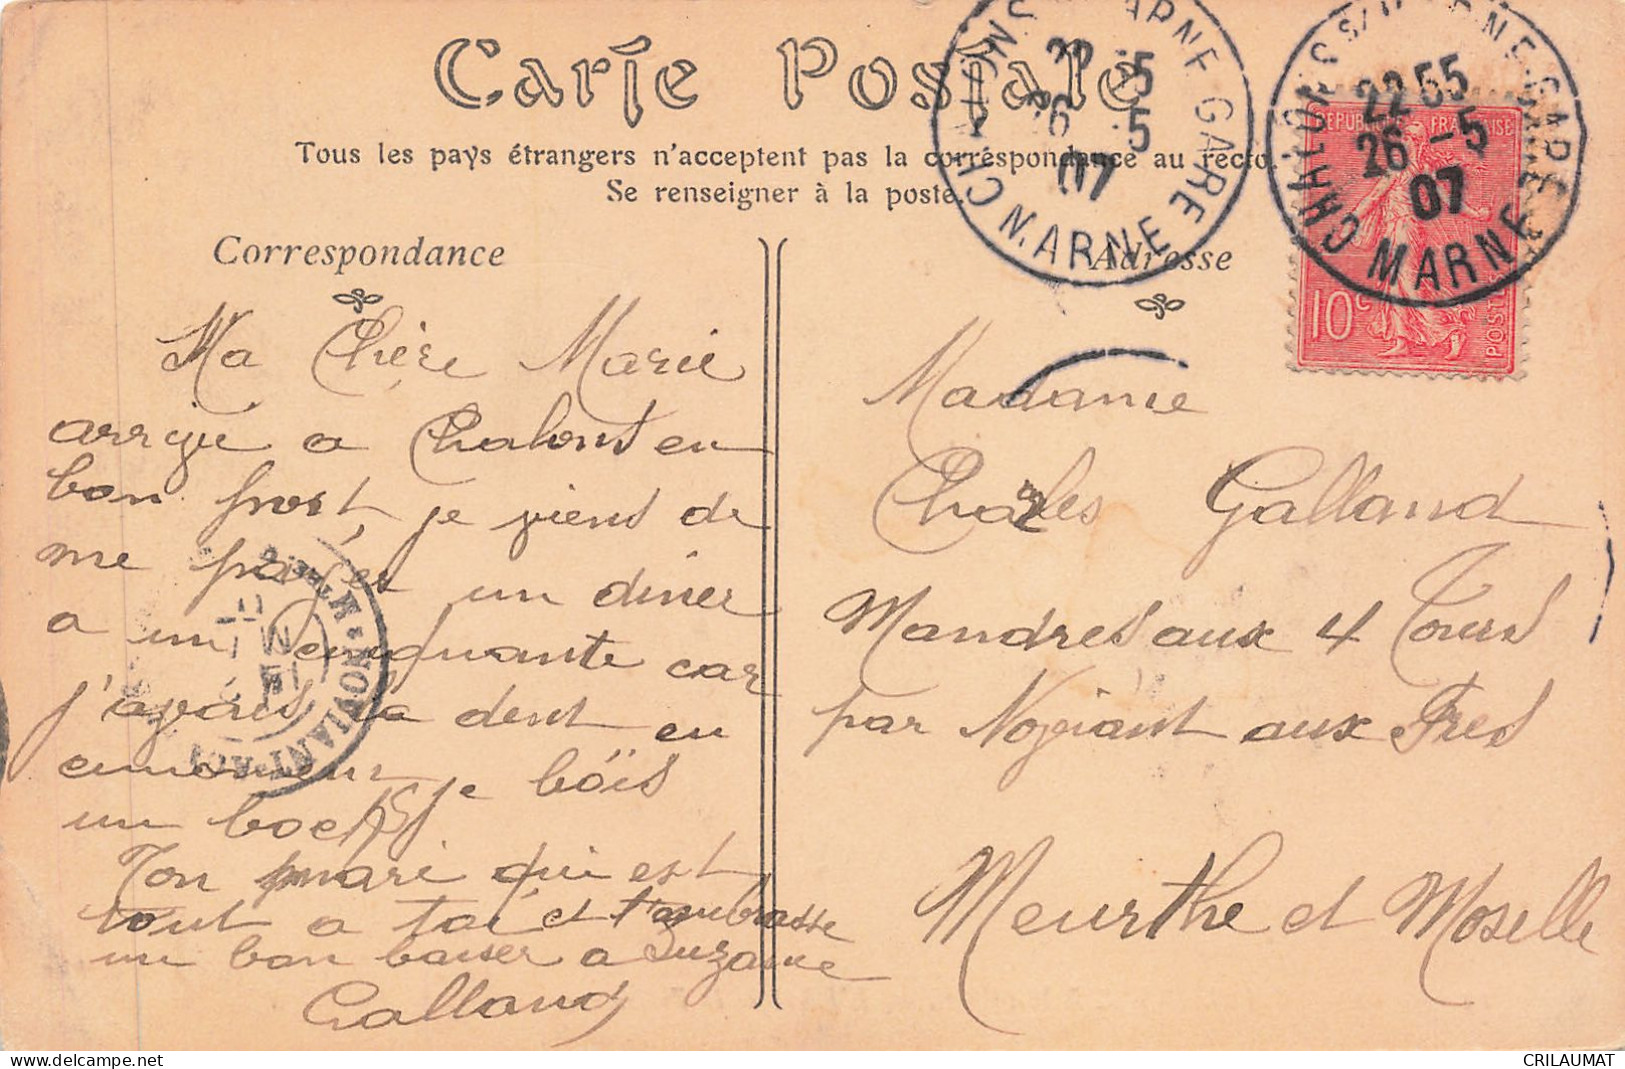 Carte Postale
Tous les pays étrangers n'acceptent pas la correspondance au recto.
Se renseigner à la poste.
CHALONS S/ MARNE GARE
22 55
26 -5
07
MARNE
CHALONS S/ MARNE GARE
22 55
26 -5
07
MARNE
REPUBLIQUE FRANÇAISE
10c
POSTES
Correspondance
Ma Chère Marie
arrivé a Chalons en
bon port, je viens de
me payer un diner
a un cinquante car
j'avais la dent en
un boeuf je bois
Ton mari qui est
tout a toi et t'embrasse
un bon baiser a Suzanne
Galland
NOVIANT
Adresse
Madame
Charles Galland
Mandres aux 4 Tours
par Noviant aux Prés
Meurthe et Moselle
delcampe.net
CRILAUMAT